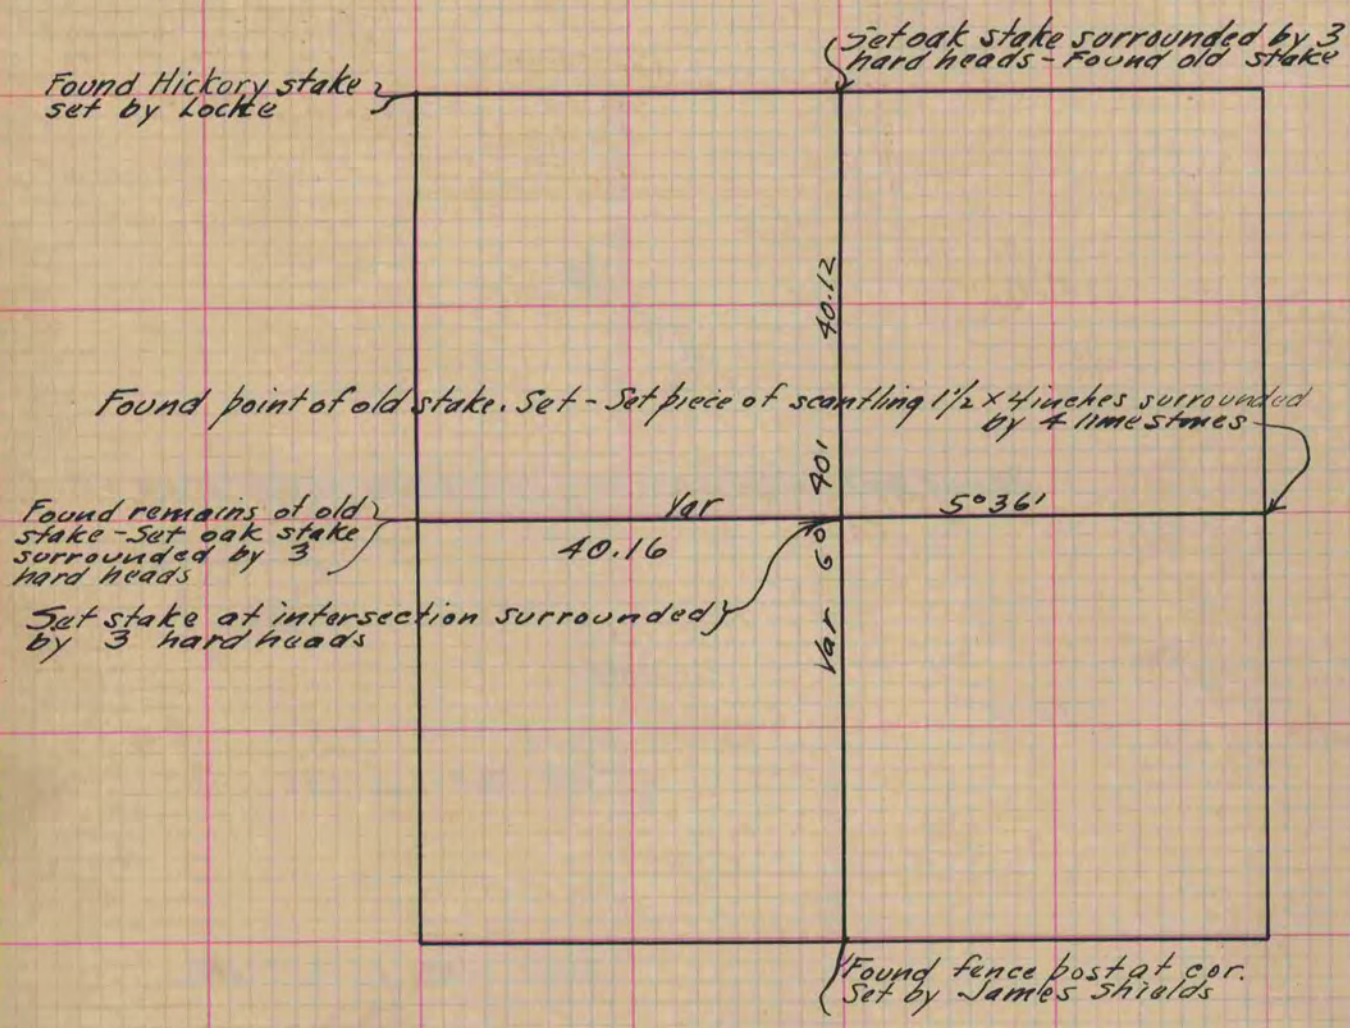 Set oak stake surrounded by 3
hard heads - Found old stake
Found Hickory stake
set by Locke
40.12
Found point of old stake. Set - Set piece of scantling 1 1/2 x 4 inches surrounded
by 4 limestones
Var 6° 40'
Var 5° 36'
Found remains of old
stake - Set oak stake
surrounded by 3
hard heads
40.16
Set stake at intersection surrounded
by 3 hard heads
Found fence post at cor.
Set by James Shields